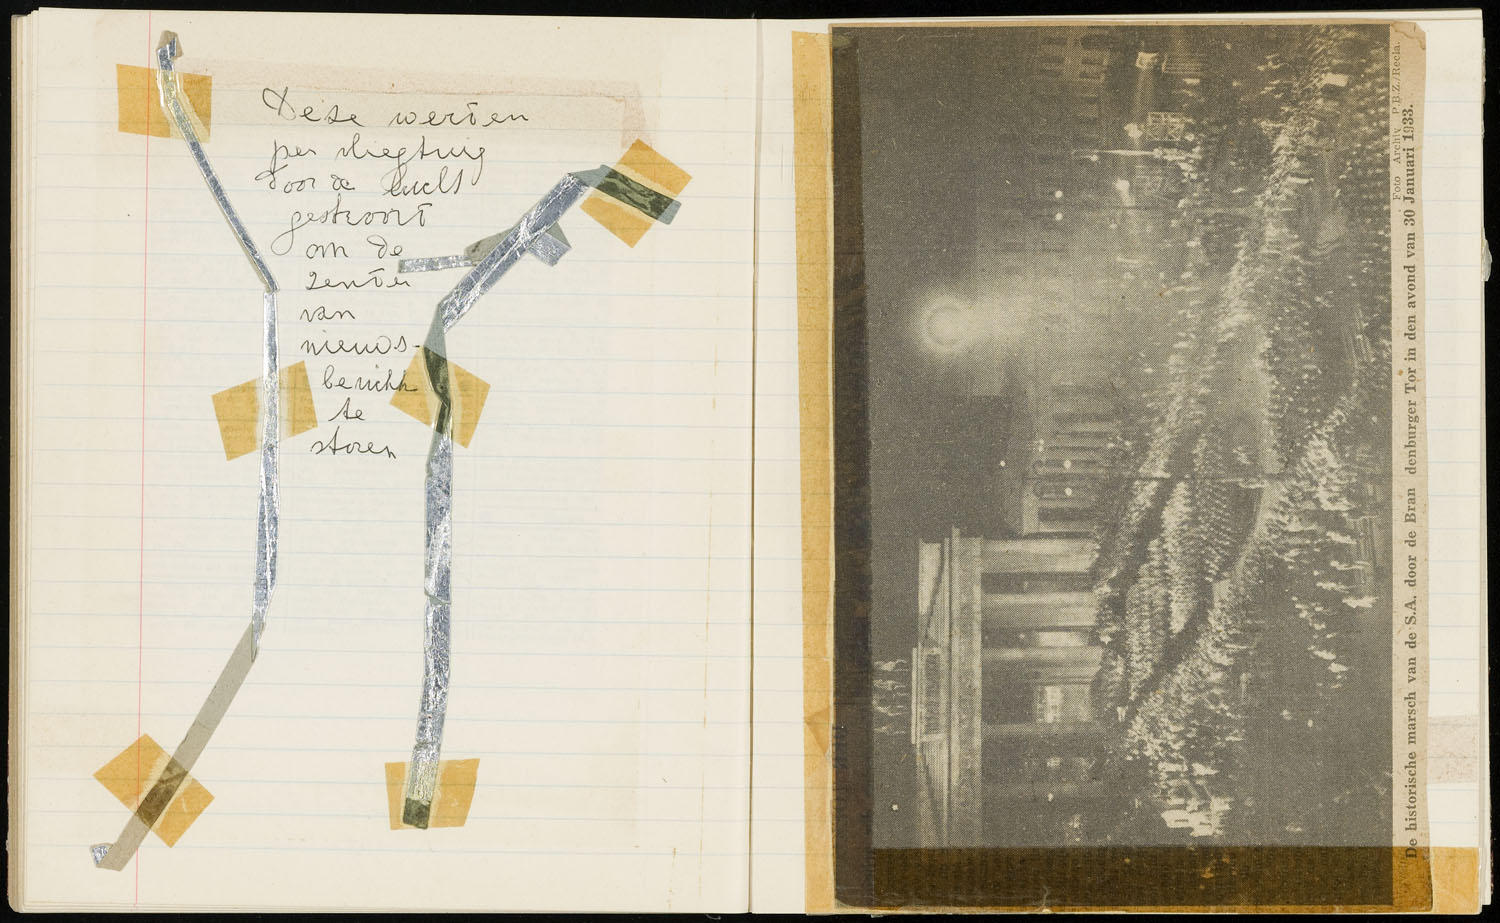 Deze werden
per vliegtuig
door de lucht
gestrooit
om de
zender
van
nieuws-
bericht
te
storen
Foto Archiv P.B.Z./Recla.
De historische marsch van de S.A. door de Bran denburger Tor in den avond van 30 Januari 1933.